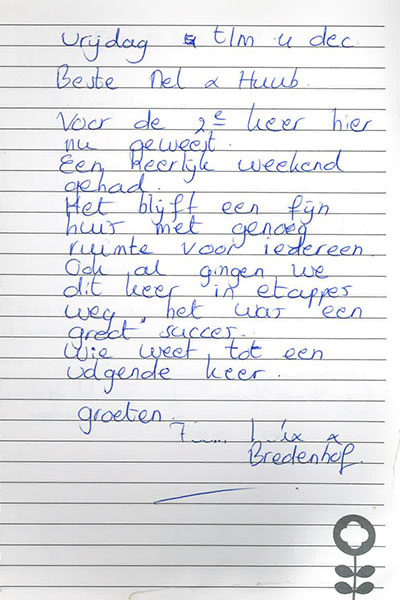 Vrijdag t/m 4 dec
Beste Nel & Huub.
Voor de 2e keer hier
nu geweest.
Een heerlijk weekend
gehad.
Het blijft een fijn
huis met genoeg
ruimte voor iedereen.
Ook al gingen we
dit keer in etappes
weg, het was een
groot succes.
Wie weet, tot een
volgende keer.
groeten.
Bredenhof.